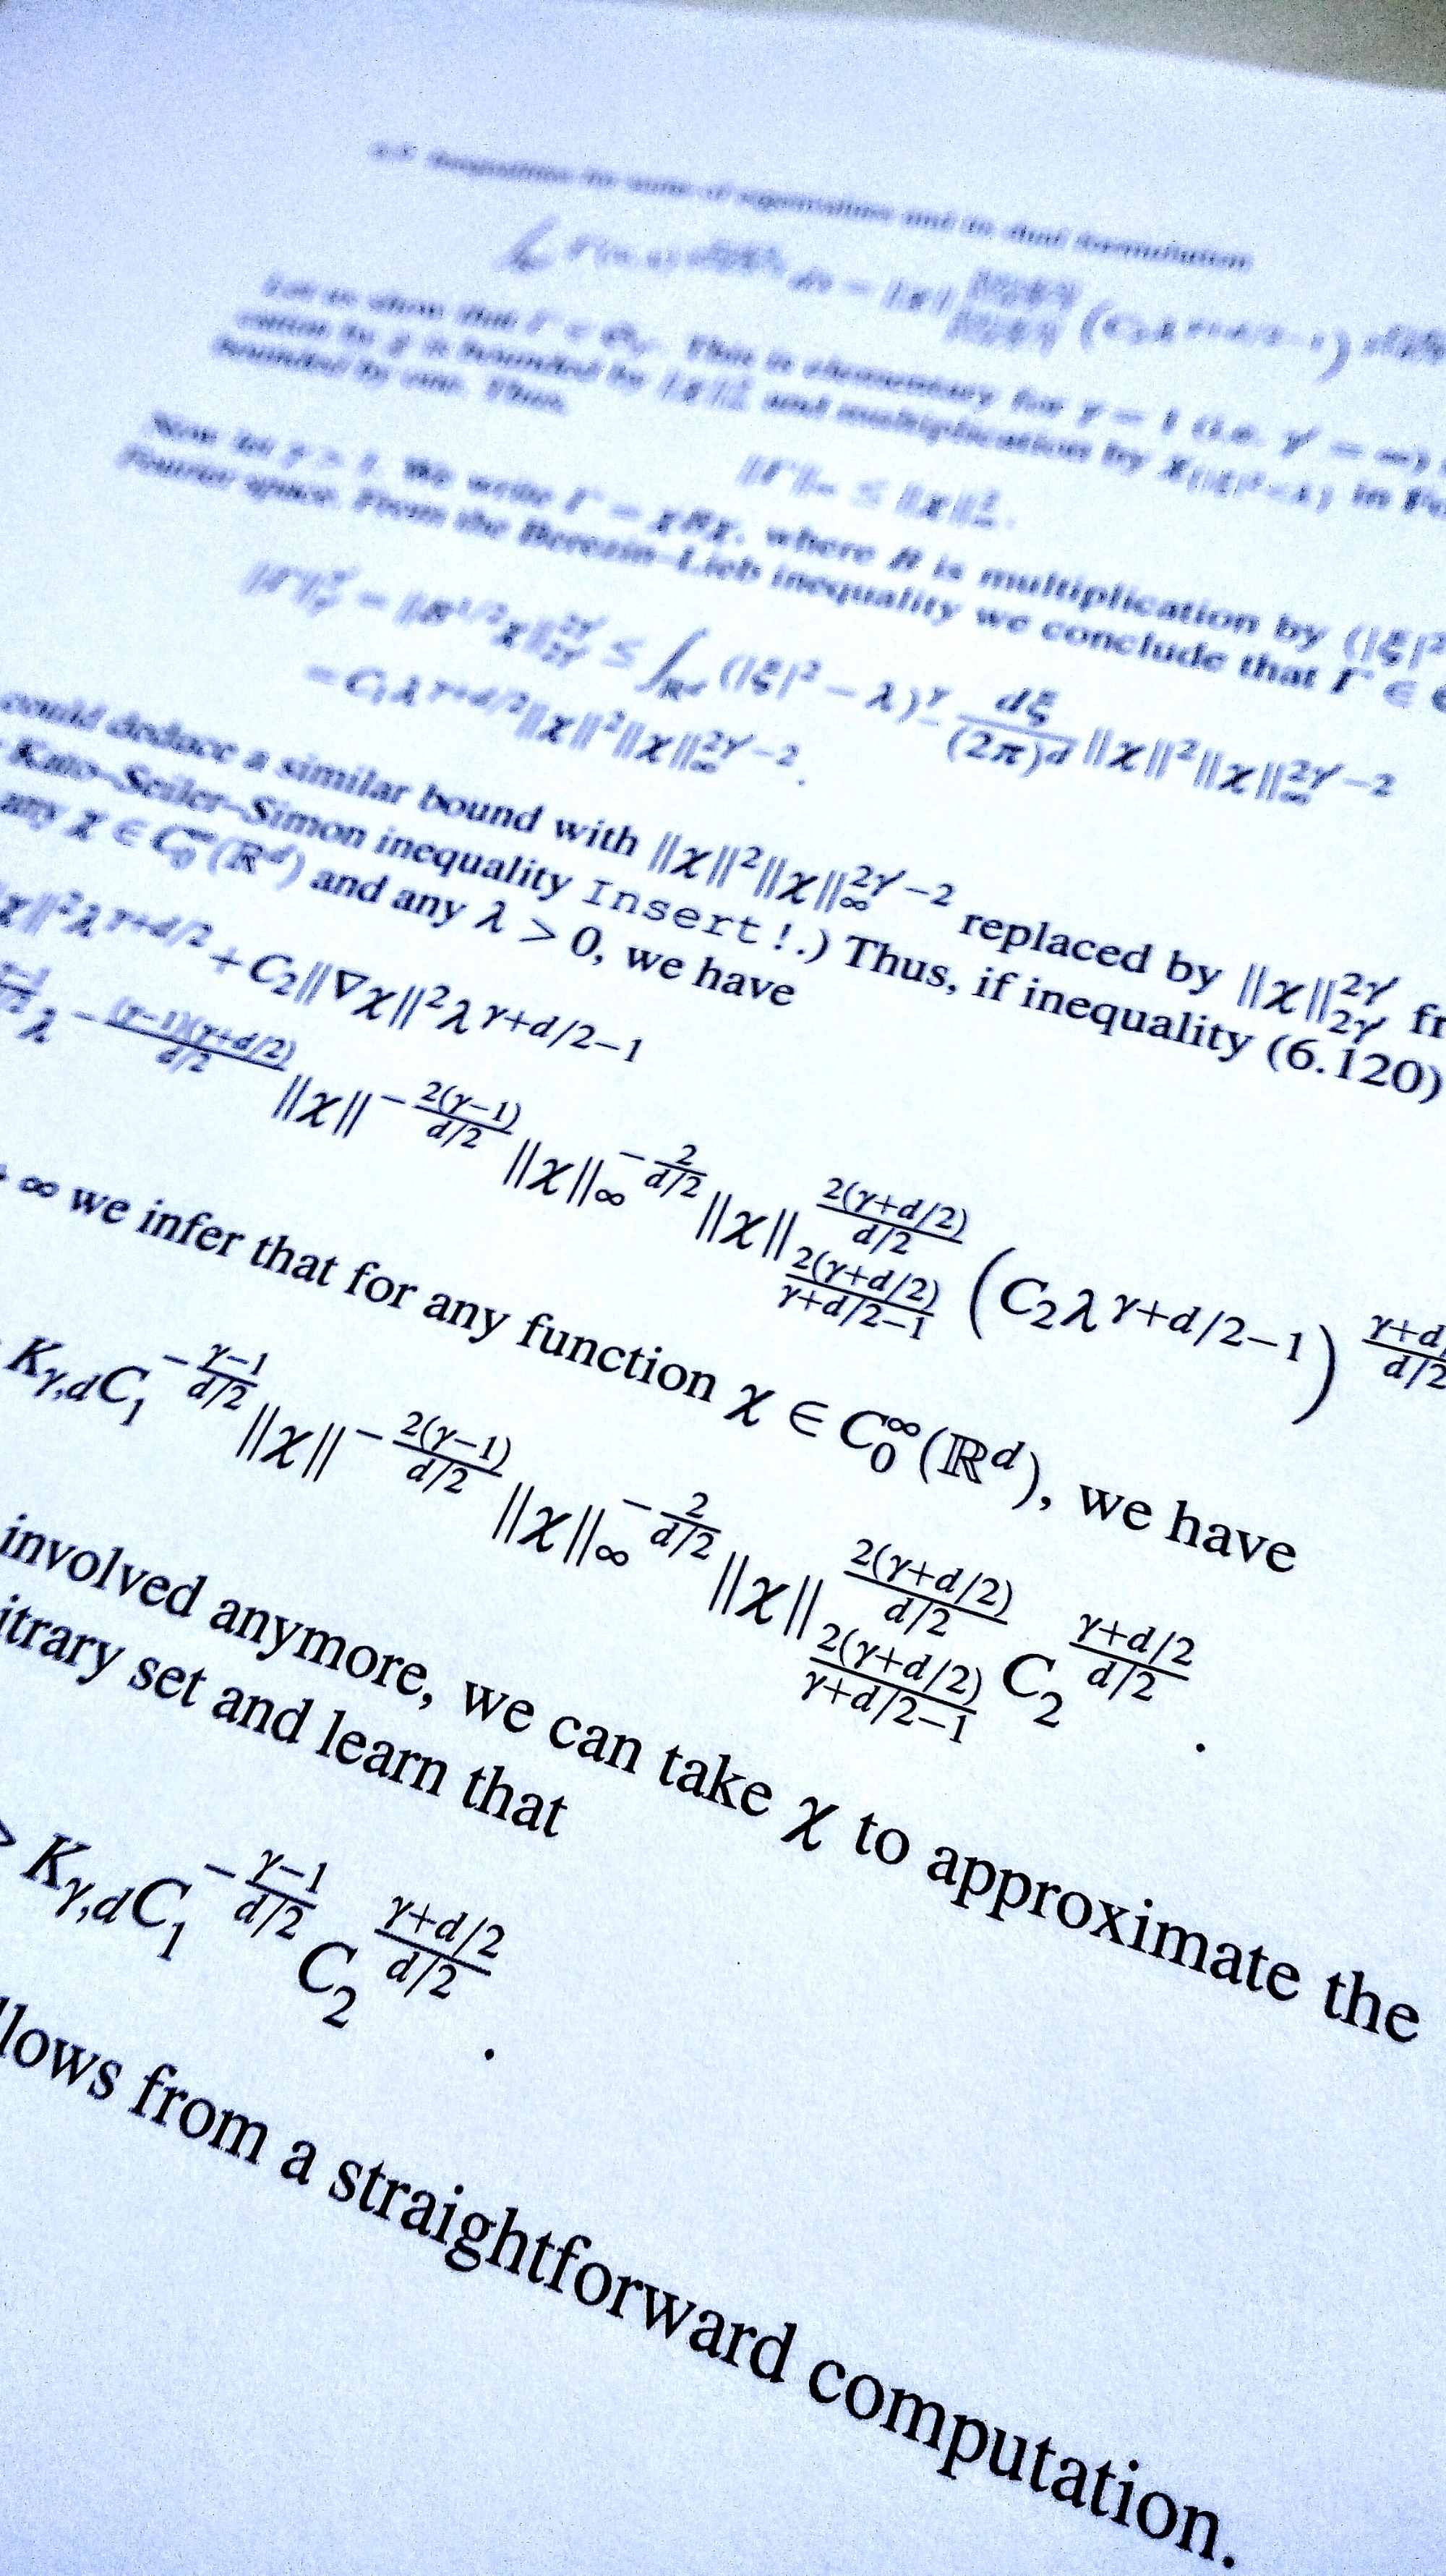 Inequalities for sums of eigenvalues and its dual formulation
Let us show that Γ ∈ . This is elementary for γ = 1 (i.e. γ′ = ∞)
by χ is bounded by ‖χ‖ and multiplication by χ in
bounded by one. Thus,
‖Γ‖∞ ≤ ‖χ‖²∞.
Now let γ > 1. We write Γ = χBχ, where B is multiplication by (|ξ|²
Fourier space. From the Berezin–Lieb inequality we conclude that Γ ∈
‖Γ‖^{γ′}_{γ′} = ‖B^{1/2}χ‖^{2γ′}_{2γ′} ≤ ∫_{ℝ^d} (|ξ|² − λ)^γ_− dξ/(2π)^d ‖χ‖²‖χ‖^{2γ′−2}_∞
= C₁λ^{γ+d/2}‖χ‖²‖χ‖^{2γ′−2}_∞.
could deduce a similar bound with ‖χ‖²‖χ‖^{2γ′−2}_∞ replaced by ‖χ‖^{2γ′}_{2γ′} fr
Kato–Seiler–Simon inequality Insert!.) Thus, if inequality (6.120)
any χ ∈ C^∞_0(ℝ^d) and any λ > 0, we have
χ‖²λ^{γ+d/2} + C₂‖∇χ‖²λ^{γ+d/2−1}
λ^{−\frac{(γ−1)(γ+d/2)}{d/2}}‖χ‖^{−\frac{2(γ−1)}{d/2}}‖χ‖_∞^{−\frac{2}{d/2}}‖χ‖^{\frac{2(γ+d/2)}{d/2}}_{\frac{2(γ+d/2)}{γ+d/2−1}}(C₂λ^{γ+d/2−1})^{\frac{γ+d/}{d/2}}
∞ we infer that for any function χ ∈ C^∞_0(ℝ^d), we have
K_{γ,d}C₁^{−\frac{γ−1}{d/2}}‖χ‖^{−\frac{2(γ−1)}{d/2}}‖χ‖_∞^{−\frac{2}{d/2}}‖χ‖^{\frac{2(γ+d/2)}{d/2}}_{\frac{2(γ+d/2)}{γ+d/2−1}}C₂^{\frac{γ+d/2}{d/2}}.
involved anymore, we can take χ to approximate the
itrary set and learn that
> K_{γ,d}C₁^{−\frac{γ−1}{d/2}}C₂^{\frac{γ+d/2}{d/2}}.
llows from a straightforward computation.